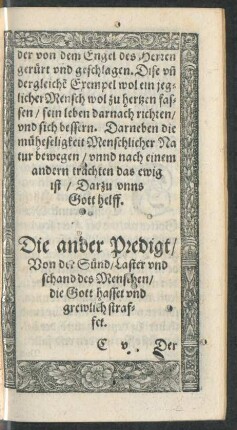 der von dem Engel des Herren
gerürt vnd geschlagen. Dise vñ
dergleichē Exempel wol ein jeg-
licher Mensch wol zu hertzen fas-
sen / sein leben darnach richten /
vnd sich bessern. Darneben die
müheseligkeit Menschlicher Na
tur bewegen / vnnd nach einem
andern trachten das ewig
ist / Darzu vnns
Gott helff.
Die ander Predigt /
Von der Sünd / Laster vnd
schand des Menschen /
die Gott hasset vnd
grewlich straf-
fet.
C v Der